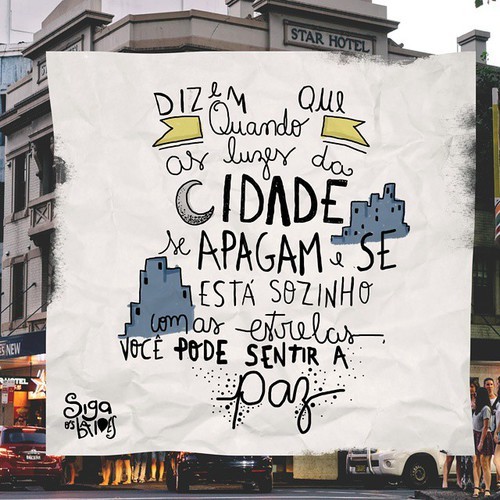 STAR HOTEL
DIZEM QUE
Quando
as luzes da
CIDADE
se APAGAM e SE
ESTÁ SOZINHO
com as estrelas
VOCÊ PODE SENTIR A
paz
Siga
os
NEW